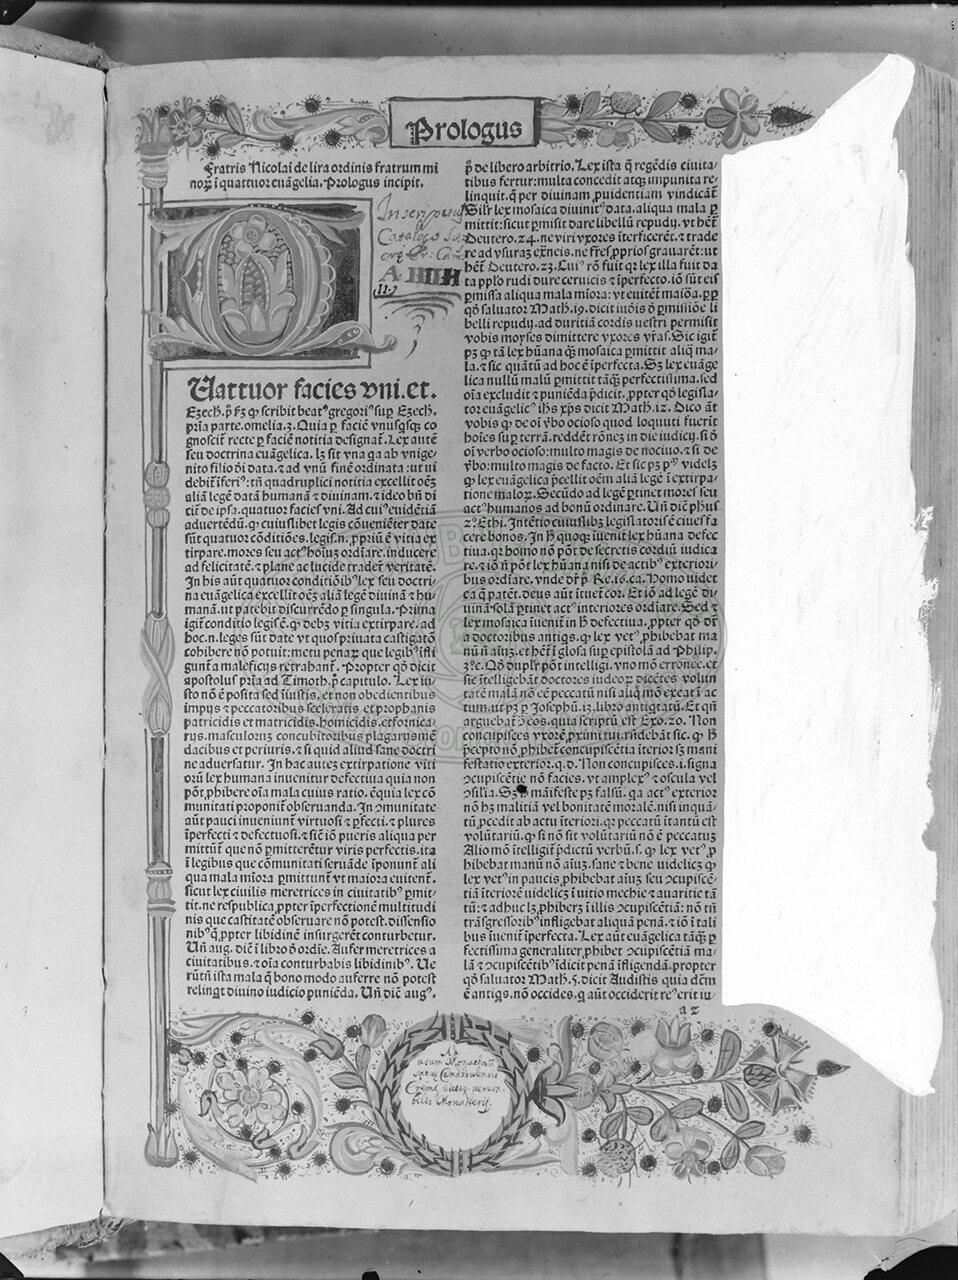 Prologus
Fratris Nicolai de lira ordinis fratrum mi
noꝝ ī quattuor euāgelia. Prologus incipit.
Inscriptus
Catalogo
A IIII H
II.
Uattuor facies vni.et.
Ezech. p̄. ꝙ scribit beatꝰ gregoriꝰ suꝑ Ezech.
pria parte.omelia.3. Quia ꝑ faciē vnusqsqꝫ co
gnoscit̄ recte ꝑ faciē notitia designat̄. Lex autē
seu doctrina euāgelica. lꝫ sit vna qa ab vnige-
nito filio ōi data.⁊ ad vnū finē ordinata: ut ui
debit̄ īferiꝰ: tn̄ quadruplici notitia excellit oēꝫ
aliā legē datā humanā ⁊ diuinam.⁊ ideo bn̄ di
cit̄ de ipsa. quatuor facies vni. Ad cuiꝰ euidētiā
aduertēdū. ꝙ cuiuslibet legis cōueniēter date
sūt quatuor cōditiōes. legis.n.ꝓpriū ē vitia ex
tirpare.mores seu actꝰ hoīuꝫ ordiare.inducere
ad felicitatē.⁊ plane ac lucide tradeř veritatē.
In his aūt quatuor conditiōibꝰ lex seu doctri
na euāgelica excellit oēꝫ aliā legē diuinā ⁊ hu-
manā.ut patebit discurrēdo ꝑ singula. Prima
igit̄ conditio legis ē. ꝙ debꝫ vitia extirpare. ad
hoc.n. leges sūt date vt quos priuata castigatō
cohibere nō potuit: metu penaꝝ que legibꝰ īfli
gunt̄ a maleficijs retrahant̄. Propter qō dicit
apostolus pria ad Timoth. p̄ capitulo. Lex iu-
sto nō ē posita sed iiustis. et non obedientibus
impijs ⁊ peccatoribus sceleratis et prophanis
patricidis et matricidis.homicidis. et fornica-
rijs. masculoruꝫ concubitoribus plagarijs mē
dacibus et periuris. ⁊ si quid aliud sane doctri
ne aduersatur. In hac auteꝫ extirpatione viti
orū lex humana inuenitur defectiua quia non
pōt ꝓhibere oīa mala cuius ratio. ē quia lex cō
munitati proponit̄ obseruanda. In ꝯmunitate
aūt pauci inueniunt̄ virtuosi ⁊ ꝑfecti. ⁊ plures
īperfecti ⁊ defectuosi. ⁊ sic iō pueris aliqua per
mittūt̄ que nō ꝑmitterētur viris perfectis. ita
ī legibus que cōmunitati seruāde īponunt̄ ali
qua mala miora ꝑmittunt̄ vt maiora euitent̄.
sicut lex ciuilis meretrices in ciuitatibꝰ ꝑmit-
tit. ne respublica ꝓpter īperfectionē multitudi
nis que castitatē obseruare nō potest. dissensio
nibꝰ q̄ ꝓpter libidinē insurgerēt conturbetur.
Un̄ aug. dicit̄ ī libro ō ordie. Aufer meretrices a
ciuitatibus. ⁊ oīa conturbabis libidinibꝰ. Ue
rūtn̄ ista mala q̄ bono modo auferre nō potest
relinqt diuino iudicio puniēda. Un̄ dic̄ augꝰ.
p̄ de libero arbitrio. Lex ista q̄ regēdis ciuita-
tibus fertur: multa concedit atqꝫ impunita re-
linquit. q̄ per diuinam ꝓuidentiam vindicāt̄
Silr lex mosaica diuinitꝰ data. aliqua mala ꝑ
mittit: sicut ꝑmisit dare libellū repudij. vt het̄
Deutero.24. ne viri vxores īterficerēt. ⁊ trade
re ad vsuraꝫ exneis. ne fres ꝓprios grauarēt: ut
het̄ Deutero.23. Cuiꝰ rō fuit qꝛ lex illa fuit da
ta pplo rudi dure ceruicis ⁊ īperfecto. iō sūt eis
ꝑmissa aliqua mala miora: vt euitēt̄ maiōa. ꝓp
qō saluator Math.19. dicit iudeis ō ꝑmissiōe li
belli repudij. ad duritiā cordis uestri permisit
vobis moyses dimittere vxores vr̄as. Sic igit̄
pꝫ ꝙ tā lex hūana qꝫ mosaica ꝑmittit aliq̄ ma-
la. ⁊ sic quātū ad hoc ē īperfecta. Sꝫ lex euāge
lica nullū malū ꝑmittit tāqꝫ perfectissima. sed
oīa excludit ⁊ puniēda p̄dicit. ꝓpter qō legisla-
tor euāgelicꝰ ihs xp̄s dicit Math.12. Dico āt
vobis ꝙ de oī v̄bo ocioso quod loquuti fuerīt
hoīes suꝑ terrā. reddēt rōneꝫ in die iudicij. si ō
oī verbo ocioso: multo magis de nociuo. ⁊ si de
v̄bo: multo magis de facto. Et sic pꝫ videlꝫ
ꝙ lex euāgelica p̄cellit oēm aliā legē ī extirpa-
tione maloꝝ. Secūdo ad legē ꝑtinet mores seu
actꝰ humanos ad bonū ordinare. Un̄ dic̄ ph̄us
2º Ethi. Intētio cuiuslibꝫ legislatoris ē ciues fa
cere bonos. In H̄ quoqꝫ iuenit̄ lex hūana defec
tiua. qꝛ homo nō pōt de secretis cordiū iudica
re. ⁊ iō n̄ pōt lex hūana nisi de actibꝰ exteriori-
bus ordiare. vnde dr̄ p̄ Re.16.ca. Homo uidet
ea q̄ patēt. deus aūt ituet̄ cor. Et iō ad legē di-
uinā solā ꝑtinet actꝰ interiores ordiare. Sed ⁊
lex mosaica iuenit̄ in H̄ defectiua. ꝓpter qō dr̄
a doctoribus antiqs. ꝙ lex vetꝰ ꝓhibebat ma
nū n̄ aiuꝫ. et het̄ ī glosa suꝑ epistolā ad Philip.
3º c. Qō duplr̄ pōt intelligi. vno mō erronee. et
sic ītelligebāt doctores iudeoꝝ dicētes volun
tatē malā nō eē peccatū nisi aliq̄ mō exeat ī ac
tum. ut pꝫ ꝑ Josephū.12. libro antiqtatū. Et qn̄
arguebat̄ ꝯ eos. quia scriptū est Exo.20. Non
concupisces vxorē ꝓximi tui. rn̄debāt sic. ꝙ H̄
p̄cepto nō ꝓhibet̄ concupiscētia īterior sꝫ mani
festatio exterior. q.d. Non concupisces. i. signa
ꝯcupiscētie nō facies. vt amplexꝰ ⁊ oscula vel
ꝯsilia. Sꝫ H̄ māifeste pꝫ falsū. qa actꝰ exterior
nō hꝫ malitiā vel bonitatē moralē. nisi inquā-
tū ꝓcedit ab actu īteriori. qꝛ peccatū ītantū est
volūtariū. ꝙ si nō sit volūtariū nō ē peccatuꝫ
Alio mō ītelligit̄ p̄dictū verbū. s. ꝙ lex vetꝰ ꝓ
hibebat manū nō aiuꝫ. sane ⁊ bene uidelicꝫ ꝙ
lex vetꝰ in paucis ꝓhibebat aiuꝫ seu ꝯcupiscē-
tiā īteriorē uidelicꝫ ī uitio mechie ⁊ auaritie tā
tū: ⁊ adhuc lꝫ ꝓhiberꝫ ī illis ꝯcupiscētiā: nō tn̄
trāsgressoribꝰ īfligebat aliquā penā. ⁊ iō ī tali
bus iuenit̄ īperfecta. Lex aūt euāgelica tāqꝫ ꝑ
fectissima generaliter ꝓhibet ꝯcupiscētiā ma-
lā ⁊ ꝯcupiscētibꝰ īdicit penā īfligendā. propter
qō saluator Math.5. dicit Audistis quia dcm̄
ē antiqs. nō occides. q aūt occiderit reꝰ erit iu
a2
usum Monachorū
Monasterij